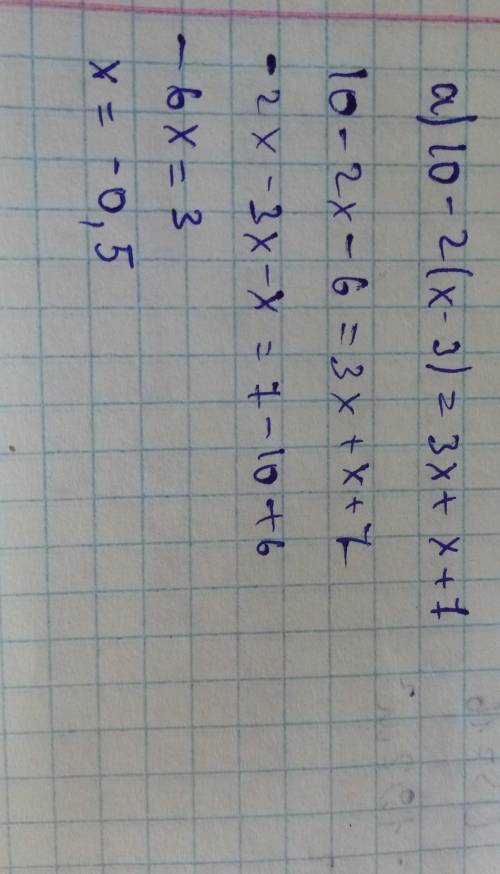 a) 10 - 2(x - 3) = 3x + x + 7
10 - 2x - 6 = 3x + x + 7
- 2x - 3x - x = 7 - 10 + 6
- 6x = 3
x = -0,5